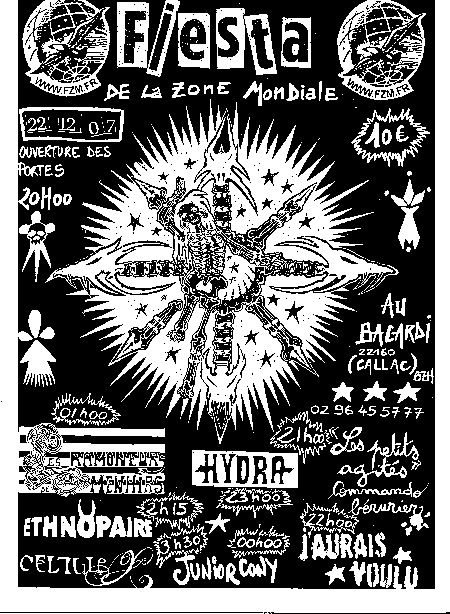 WWW.FZM.FR
Fiesta
WWW.FZM.FR
DE LA ZONE MONDIALE
22.12.07
10€
OUVERTURE DES
PORTES
20H00
AU
BACARDI
22160
(CALLAC)
BZH
02 96 45 57 77
01h00
LES RAMONEURS
DE MENHIRS
HYDRA
21h00
Les petits
agités
Commando
bérurier
23h00
2h15
ETHNOPAIRE
3h30
00h00
22h00
J'AURAIS
VOULU
CELTILE
JUNIOR CONY